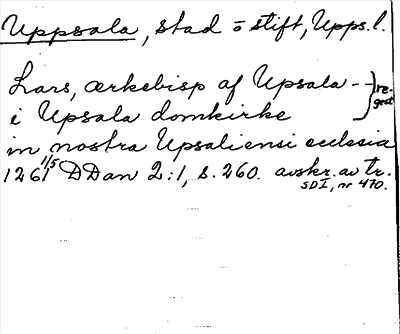 Uppsala, stad o stift, Upps.l.
Lars, ærkebisp af Upsala - } re-
i Upsala domkirke } gest
in nostra Upsaliensi ecclesia
1261 1/5 DDan 2:1, s. 260. avskr. av tr.
SD I, nr 470.